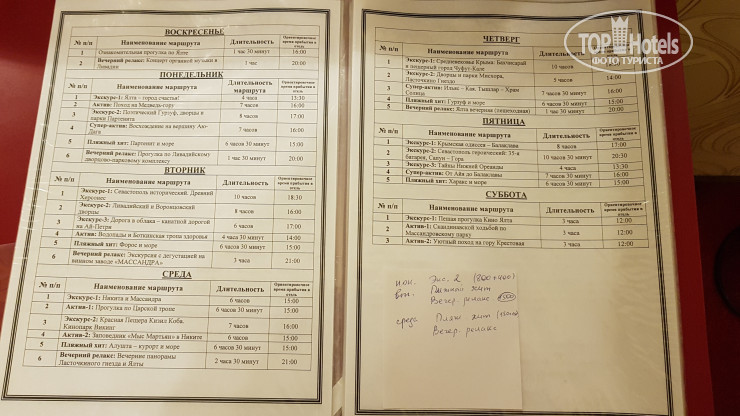 ВОСКРЕСЕНЬЕ
№ п/п Наименование маршрута Длительность Ориентировочное время прибытия в отель
1 Ознакомительная прогулка по Ялте 1 час 30 минут 16:00
2 Вечерний релакс: Концерт органной музыки в Ливадии 1 час 20:00
ПОНЕДЕЛЬНИК
№ п/п Наименование маршрута Длительность маршрута Ориентировочное время прибытия в отель
1 Экскурс-1: Ялта – город счастья! 4 часа 13:30
2 Актив: Поход на Медведь-гору 7 часов 16:00
3 Экскурс-2: Поэтический Гурзуф, дворцы и парки Партенита 8 часов 17:00
4 Супер-актив: Восхождение на вершину Аю-Дага 7 часов 16:00
5 Пляжный хит: Партенит и море 6 часов 30 минут 15:00
6 Вечерний релакс: Прогулка по Ливадийскому дворцово-парковому комплексу 1 час 30 минут 20:00
ВТОРНИК
№ п/п Наименование маршрута Длительность Ориентировочное время прибытия в отель
1 Экскурс-1: Севастополь исторический. Древний Херсонес 10 часов 18:30
2 Экскурс-2: Ливадийский и Воронцовский дворцы 8 часов 16:00
3 Экскурс-3: Дорога в облака – канатной дорогой на Ай-Петри 6 часов 17:00
4 Актив: Водопады и Боткинская тропа здоровья 4 часа 30 минут 14:00
5 Пляжный хит: Форос и море 6 часов 30 минут 15:00
6 Вечерний релакс: Экскурсия с дегустацией на винном заводе «МАССАНДРА» 3 часа 21:00
СРЕДА
№ п/п Наименование маршрута Длительность Ориентировочное время прибытия в отель
1 Экскурс-1: Никита и Массандра 6 часов 15:00
2 Актив-1: Прогулка по Царской тропе 6 часов 30 минут 15:00
3 Экскурс-2: Красная Пещера Кизил Коба. Кинопарк Викинг 7 часов 16:00
4 Актив-2: Заповедник «Мыс Мартьян» в Никите 6 часов 15:00
5 Пляжный хит: Алушта – курорт и море 6 часов 30 минут 15:00
6 Вечерний релакс: Вечерние панорамы Ласточкиного гнезда и Ялты 2 часа 30 минут 21:00
ЧЕТВЕРГ
№ п/п Наименование маршрута Длительность
1 Экскурс-1: Средневековье Крыма: Бахчисарай и пещерный город Чуфут-Кале 10 часов
2 Экскурс-2: Дворцы и парки Мисхора, Ласточкино Гнездо 5 часов 14:00
4 Супер-актив: Ильяс - Кая, Тышлар - Храм Солнца 7 часов 30 минут 16:00
4 Пляжный хит: Гурзуф и море 6 часов 30 минут 15:00
5 Вечерний релакс: Ялта вечерняя (пешеходная) 1 час 30 минут 20:00
ПЯТНИЦА
№ п/п Наименование маршрута Длительность Ориентировочное время прибытия в отель
1 Экскурс-1: Крымская одиссея – Балаклава 8 часов 17:00
2 Экскурс-2: Севастополь героический: 35-я батарея, Сапун – Гора 10 часов 30 минут 20:30
3 Экскурс-3: Тайны Нижней Ореанды 4 часа 13:30
4 Супер-актив: От Айя до Балаклавы 7 часов 30 минут 16:00
5 Пляжный хит: Харакс и море 6 часов 15:00
СУББОТА
№ п/п Наименование маршрута Длительность Ориентировочное время прибытия в отель
1 Экскурс-1: Пешая прогулка Кино Ялта 3 часа 12:00
2 Актив-1: Скандинавской ходьбой по Массандровскому парку 3 часа 12:00
3 Актив-2: Уютный поход на гору Крестовая 3 часа 12:00
пон. Экс. 2 (800+400)
вт. Пляжный хит
Вечер. релакс
среда Пляж хит
Вечер. релакс
TOP Hotels
ФОТО ТУРИСТА